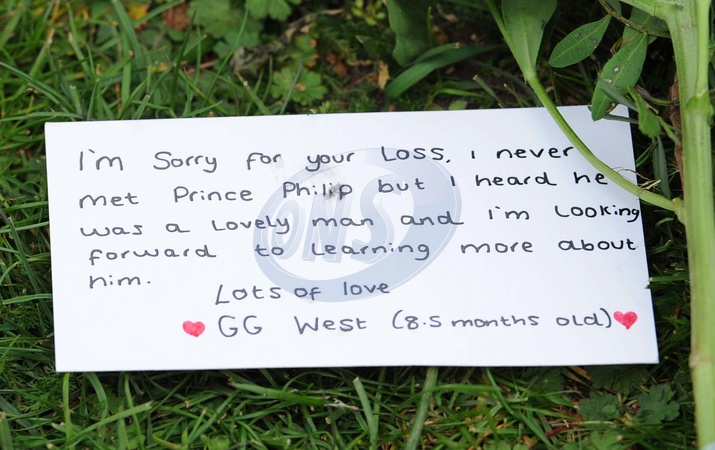 I'm Sorry for your Loss, I never
met Prince Philip but I heard he
was a Lovely man and I'm Looking
forward to Learning more about
him.
Lots of love
GG West (8.5 months old)
PNS